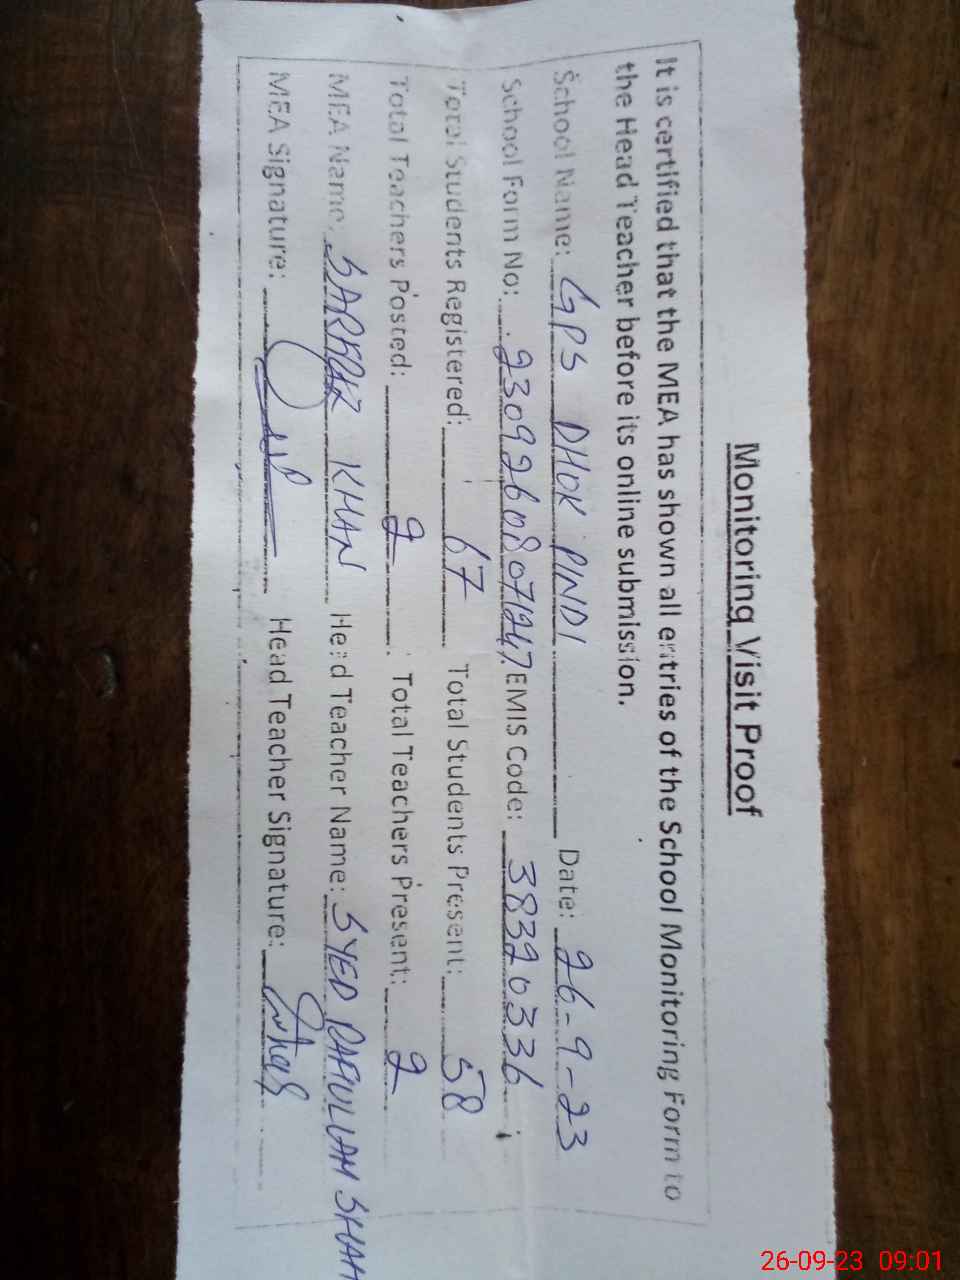 Monitoring Visit Proof
It is certified that the MEA has shown all entries of the School Monitoring Form to
the Head Teacher before its online submission.
School Name: GPS DHOK PINDI Date: 26-9-23
School Form No: EMIS Code: 38320336
Total Students Registered: 67 Total Students Present: 58
Total Teachers Posted: 2 Total Teachers Present: 2
MEA Name: KHAN Head Teacher Name: SYED SHAH
MEA Signature: Head Teacher Signature:
26-09-23 09:01